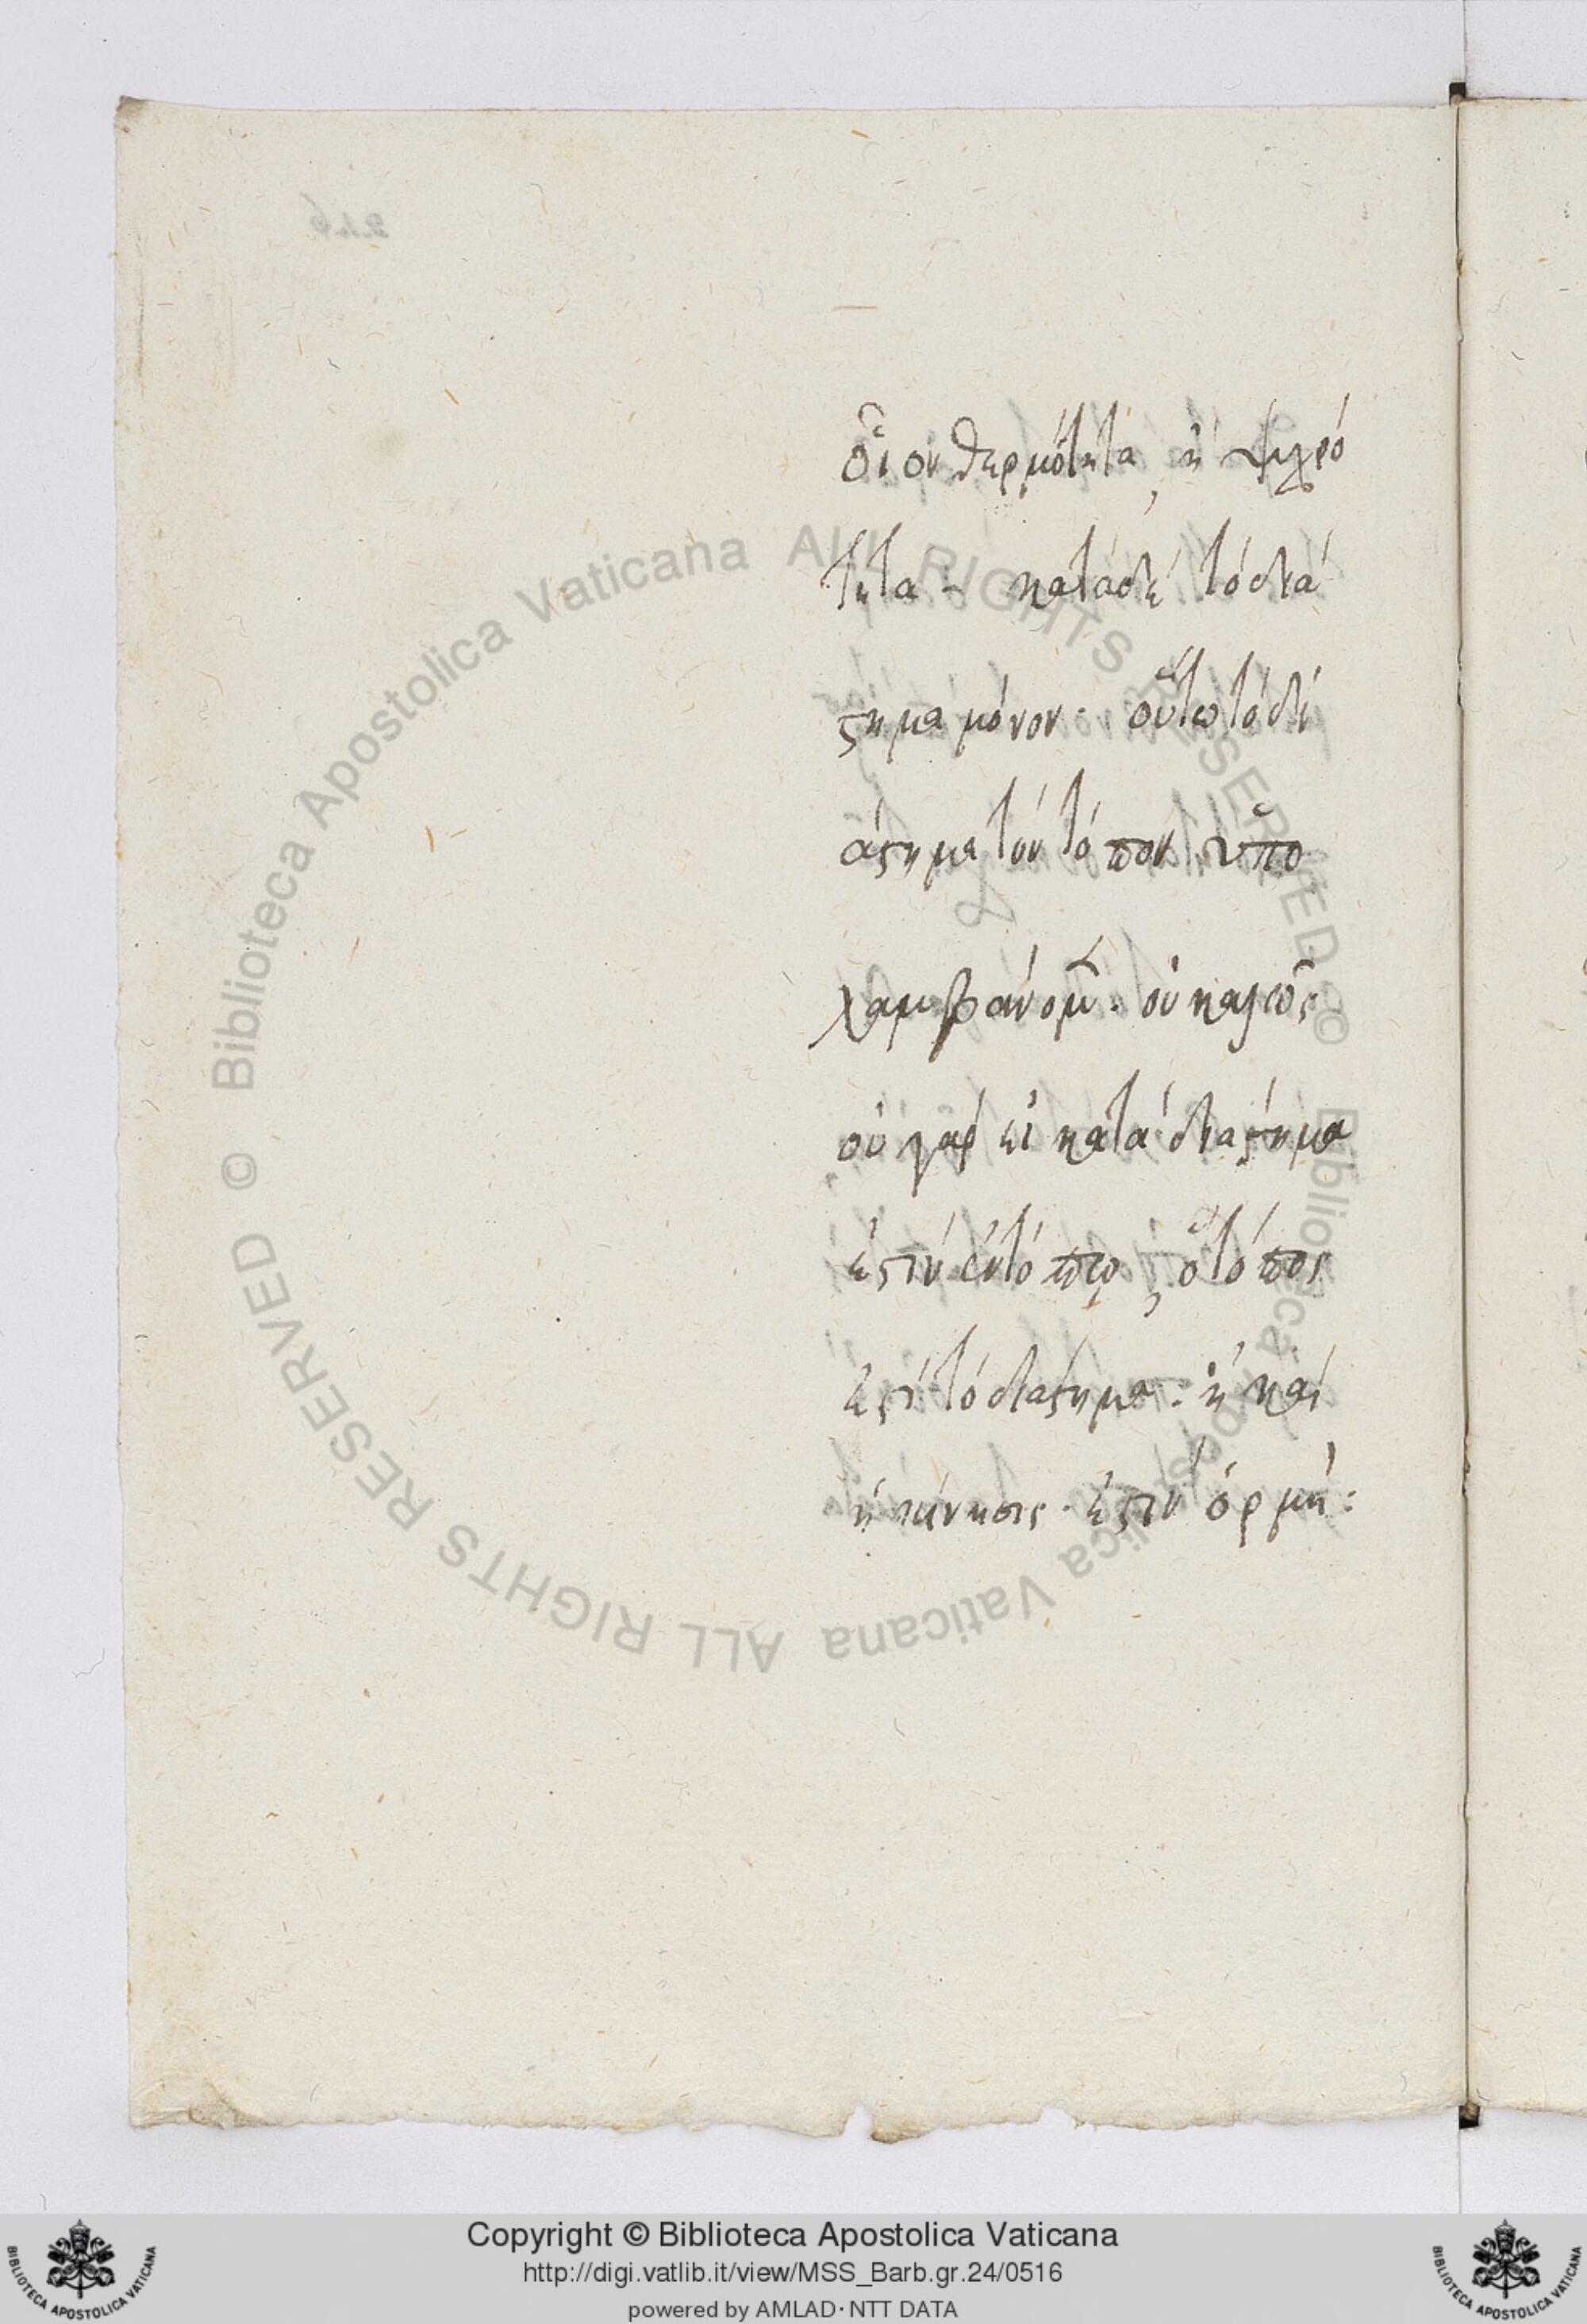 οἷον θερμότητα, ἢ ψυχρό
τητα - κατὰ δὲ τὸ διά
στημα μόνον· οὕτω τὸ δι
άστημα τὸν τόπον ὑπο
λαμβάνομ̅· οὐ καλῶς·
οὐ γὰρ εἰ κατὰ διάστημα
ἐστὶν ἐν τόπῳ, ὁ τόπος
ἐστὶ τὸ διάστημα· ἢ καὶ
ἡ κίνησις· ἐστὶν ὁρμή:
© Biblioteca Apostolica Vaticana ALL RIGHTS RESERVED © Biblioteca Apostolica Vaticana ALL RIGHTS RESERVED
Copyright © Biblioteca Apostolica Vaticana
http://digi.vatlib.it/view/MSS_Barb.gr.24/0516
powered by AMLAD · NTT DATA
BIBLIOTECA APOSTOLICA VATICANA
BIBLIOTECA APOSTOLICA VATICANA